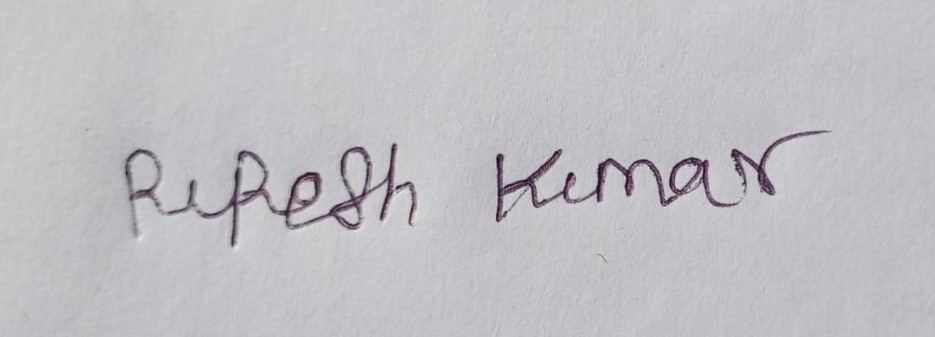 Rupesh Kumar